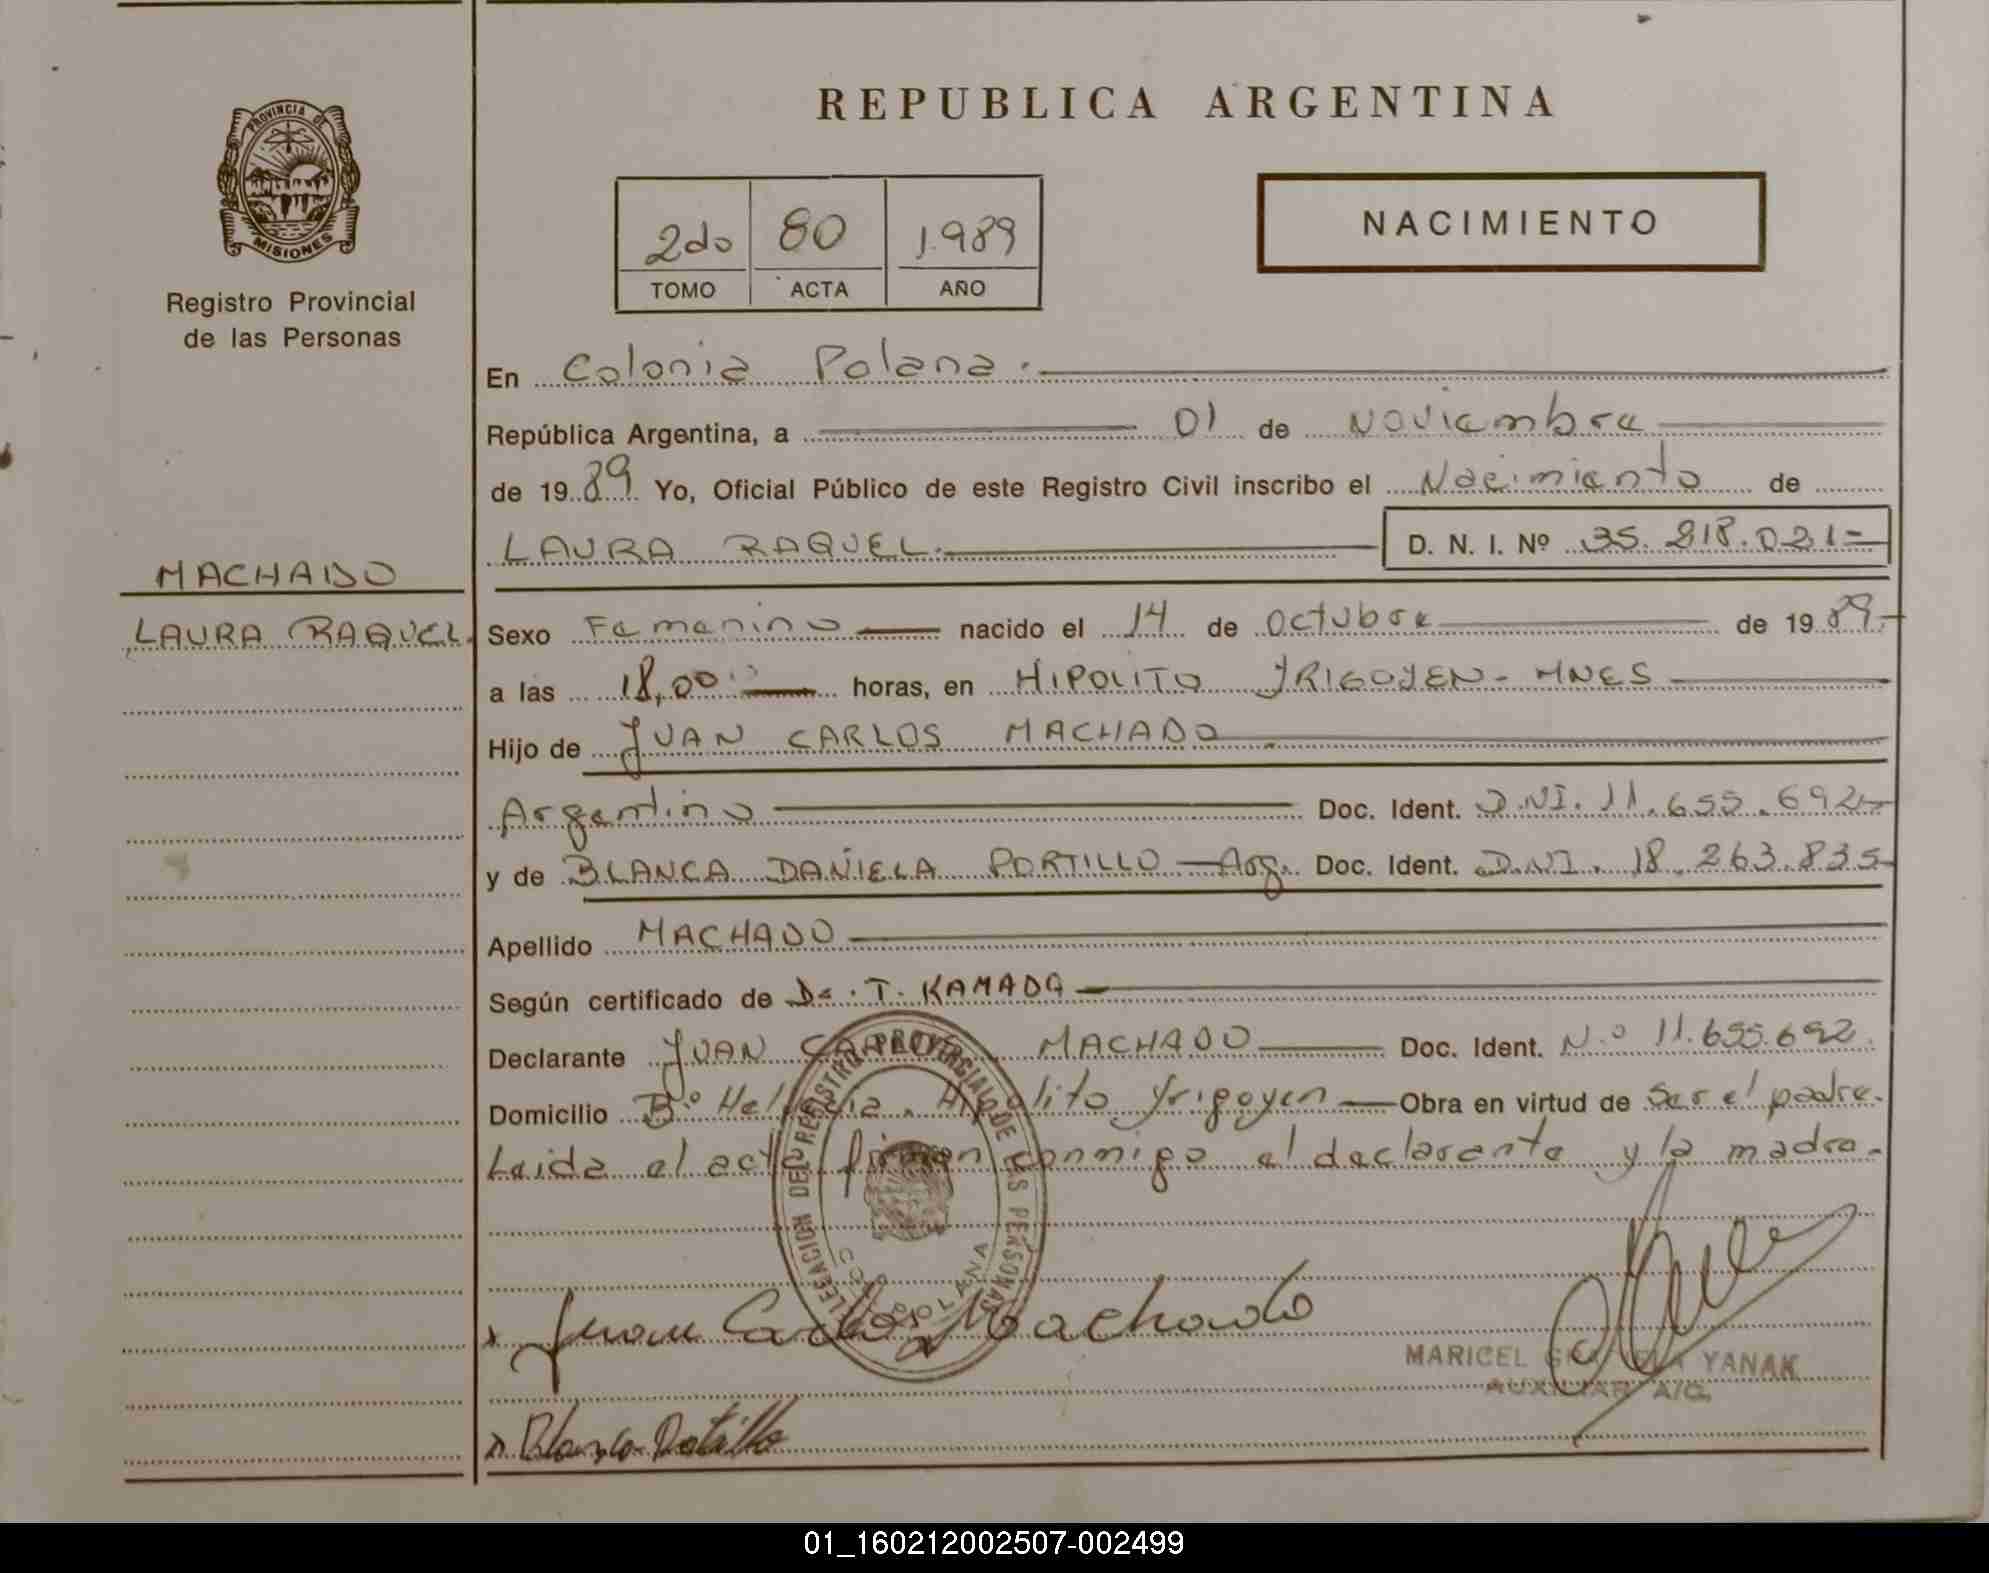 PROVINCIA DE
MISIONES
Registro Provincial
de las Personas
MACHADO
LAURA RAQUEL.
REPUBLICA ARGENTINA
2do 80 1.989
TOMO ACTA AÑO
NACIMIENTO
En Colonia Polana.
República Argentina, a 01 de Noviembre
de 1989 Yo, Oficial Público de este Registro Civil inscribo el Nacimiento de
LAURA RAQUEL. D. N. I. Nº 35.818.021-
Sexo Femenino nacido el 14 de Octubre de 1989-
a las 18,00 horas, en HIPOLITO YRIGOYEN - MNES
Hijo de JUAN CARLOS MACHADO
Argentino Doc. Ident. D.NI. 11.655.692-
y de BLANCA DANIELA PORTILLO - Arg. Doc. Ident. D.NI. 18.263.835-
Apellido MACHADO
Según certificado de Dr. T. KAMADA
Declarante JUAN CARLOS MACHADO Doc. Ident. N.º 11.655.692.
Domicilio Bº Helvecia. Hipólito Yrigoyen Obra en virtud de Ser el padre.
Leida el acta firman conmigo el declarante y la madre.-
DELEGACION DEL REGISTRO PROVINCIAL DE LAS PERSONAS
COL. POLANA
Juan Carlos Machado
MARICEL YANAK
AUXILIAR A/C.
Blanca Portillo
01_160212002507-002499